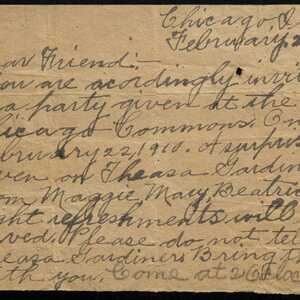 Chicago I
February 2
ear Friend:
ou are acordingly invi
a party given at the
hicago Commons. On
bruary 22, 1910. A surpris
ven on Theasa Gardin
om Maggie Mary Beatric
ght refreshments will
rved. Please do not tel
easa Gardiners Bring th
th you. Come at 2 O'clo